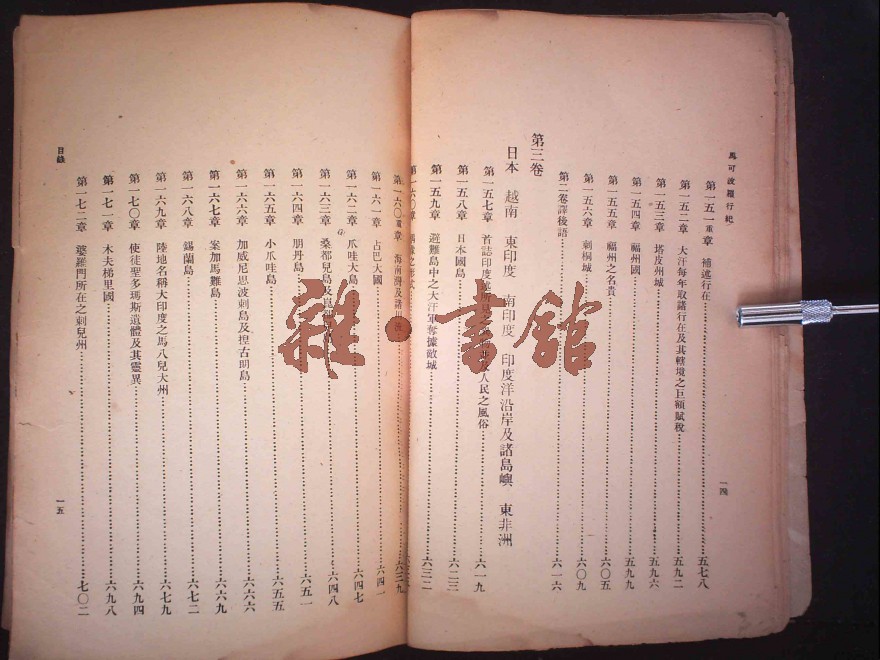 馬可波羅行紀
一四
第一五一重章 補述行在 五七八
第一五二章 大汗每年取諸行在及其轄境之巨額賦稅 五九二
第一五三章 塔皮州城 五九六
第一五四章 福州國 五九九
第一五五章 福州之名貴 六〇五
第一五六章 刺桐城 六〇九
第二卷譯後語 六一六
第三卷
日本 越南 東印度 南印度 印度洋沿岸及諸島嶼 東非洲
第一五七章 首誌印度 所見之 人民之風俗 六一九
第一五八章 日本國島 六二三
第一五九章 避難島中之大汗軍奪據敵城 六三二
第一六〇章
第一六〇重章 海南灣及諸川 六三九
第一六一章 占巴大國 六四一
第一六二章 爪哇大島 六四七
第一六三章 桑都兒島及崑 六四八
第一六四章 朋丹島 六五一
第一六五章 小爪哇島 六五五
第一六六章 加威尼思波剌島及揑古朗島 六六六
第一六七章 案加馬難島 六六九
第一六八章 錫蘭島 六七二
第一六九章 陸地名稱大印度之馬八兒大州 六七九
第一七〇章 使徒聖多瑪斯遺體及其靈異 六九四
第一七一章 木夫梯里國 六九八
第一七二章 婆羅門所在之剌兒州 七〇二
目錄
一五
雜·書館